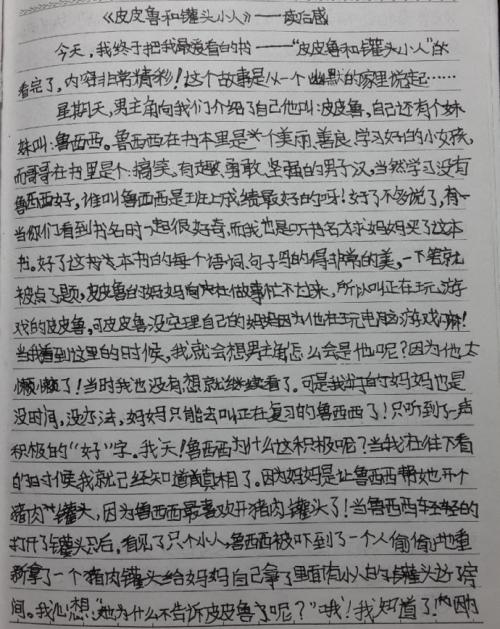 《皮皮鲁和罐头小人》——读后感
今天，我终于把我最爱看的书——“皮皮鲁和罐头小人”的
看完了，内容非常精彩！这个故事是从一个幽默的家里说起……
星期天，男主角向我们介绍了自己他叫：皮皮鲁，自己还有个妹
妹叫：鲁西西。鲁西西在书本里是一个美丽、善良、学习好的小女孩，
而哥哥在书里是个：搞笑、有趣、勇敢、坚强的男子汉，当然学习没有
鲁西西好，谁叫鲁西西是班上成绩最好的呀！好了不多说了，有
当你们看到书名时一起很好奇，而我也是听书名才求妈妈买了这本
书。好了这本书的每个语词、句子写的得非常的美，一下笔就
被点了题，皮皮鲁的妈妈有在做事忙不过来，所以叫正在玩游
戏的皮皮鲁，可皮皮鲁没空理自己的妈妈因为他在玩电脑游戏嘛！
当我看到这里的时候，我就会想男主角怎么会是他呢？因为他太
懒了！当时我也没有想就继续看了。可是我的妈妈也是
没时间，没办法，妈妈只能去叫正在复习的鲁西西了！只听到了一声
积极的“好”字。我天！鲁西西为什么这积极呢？当我在往下看
的时候我就已经知道真相了。因为妈妈是让鲁西西帮她开个
猪肉罐头，因为鲁西西最喜欢开猪肉罐头了！当鲁西西轻轻的
打开了罐头只后，看见了只个小人，鲁西西被吓到了一个人偷偷地重
新拿了一个猪肉罐头给妈妈自己拿了里面有小人的罐头进了房
间。我心想：“她为什么不告诉皮皮鲁了呢？”哦！我知道了！因为